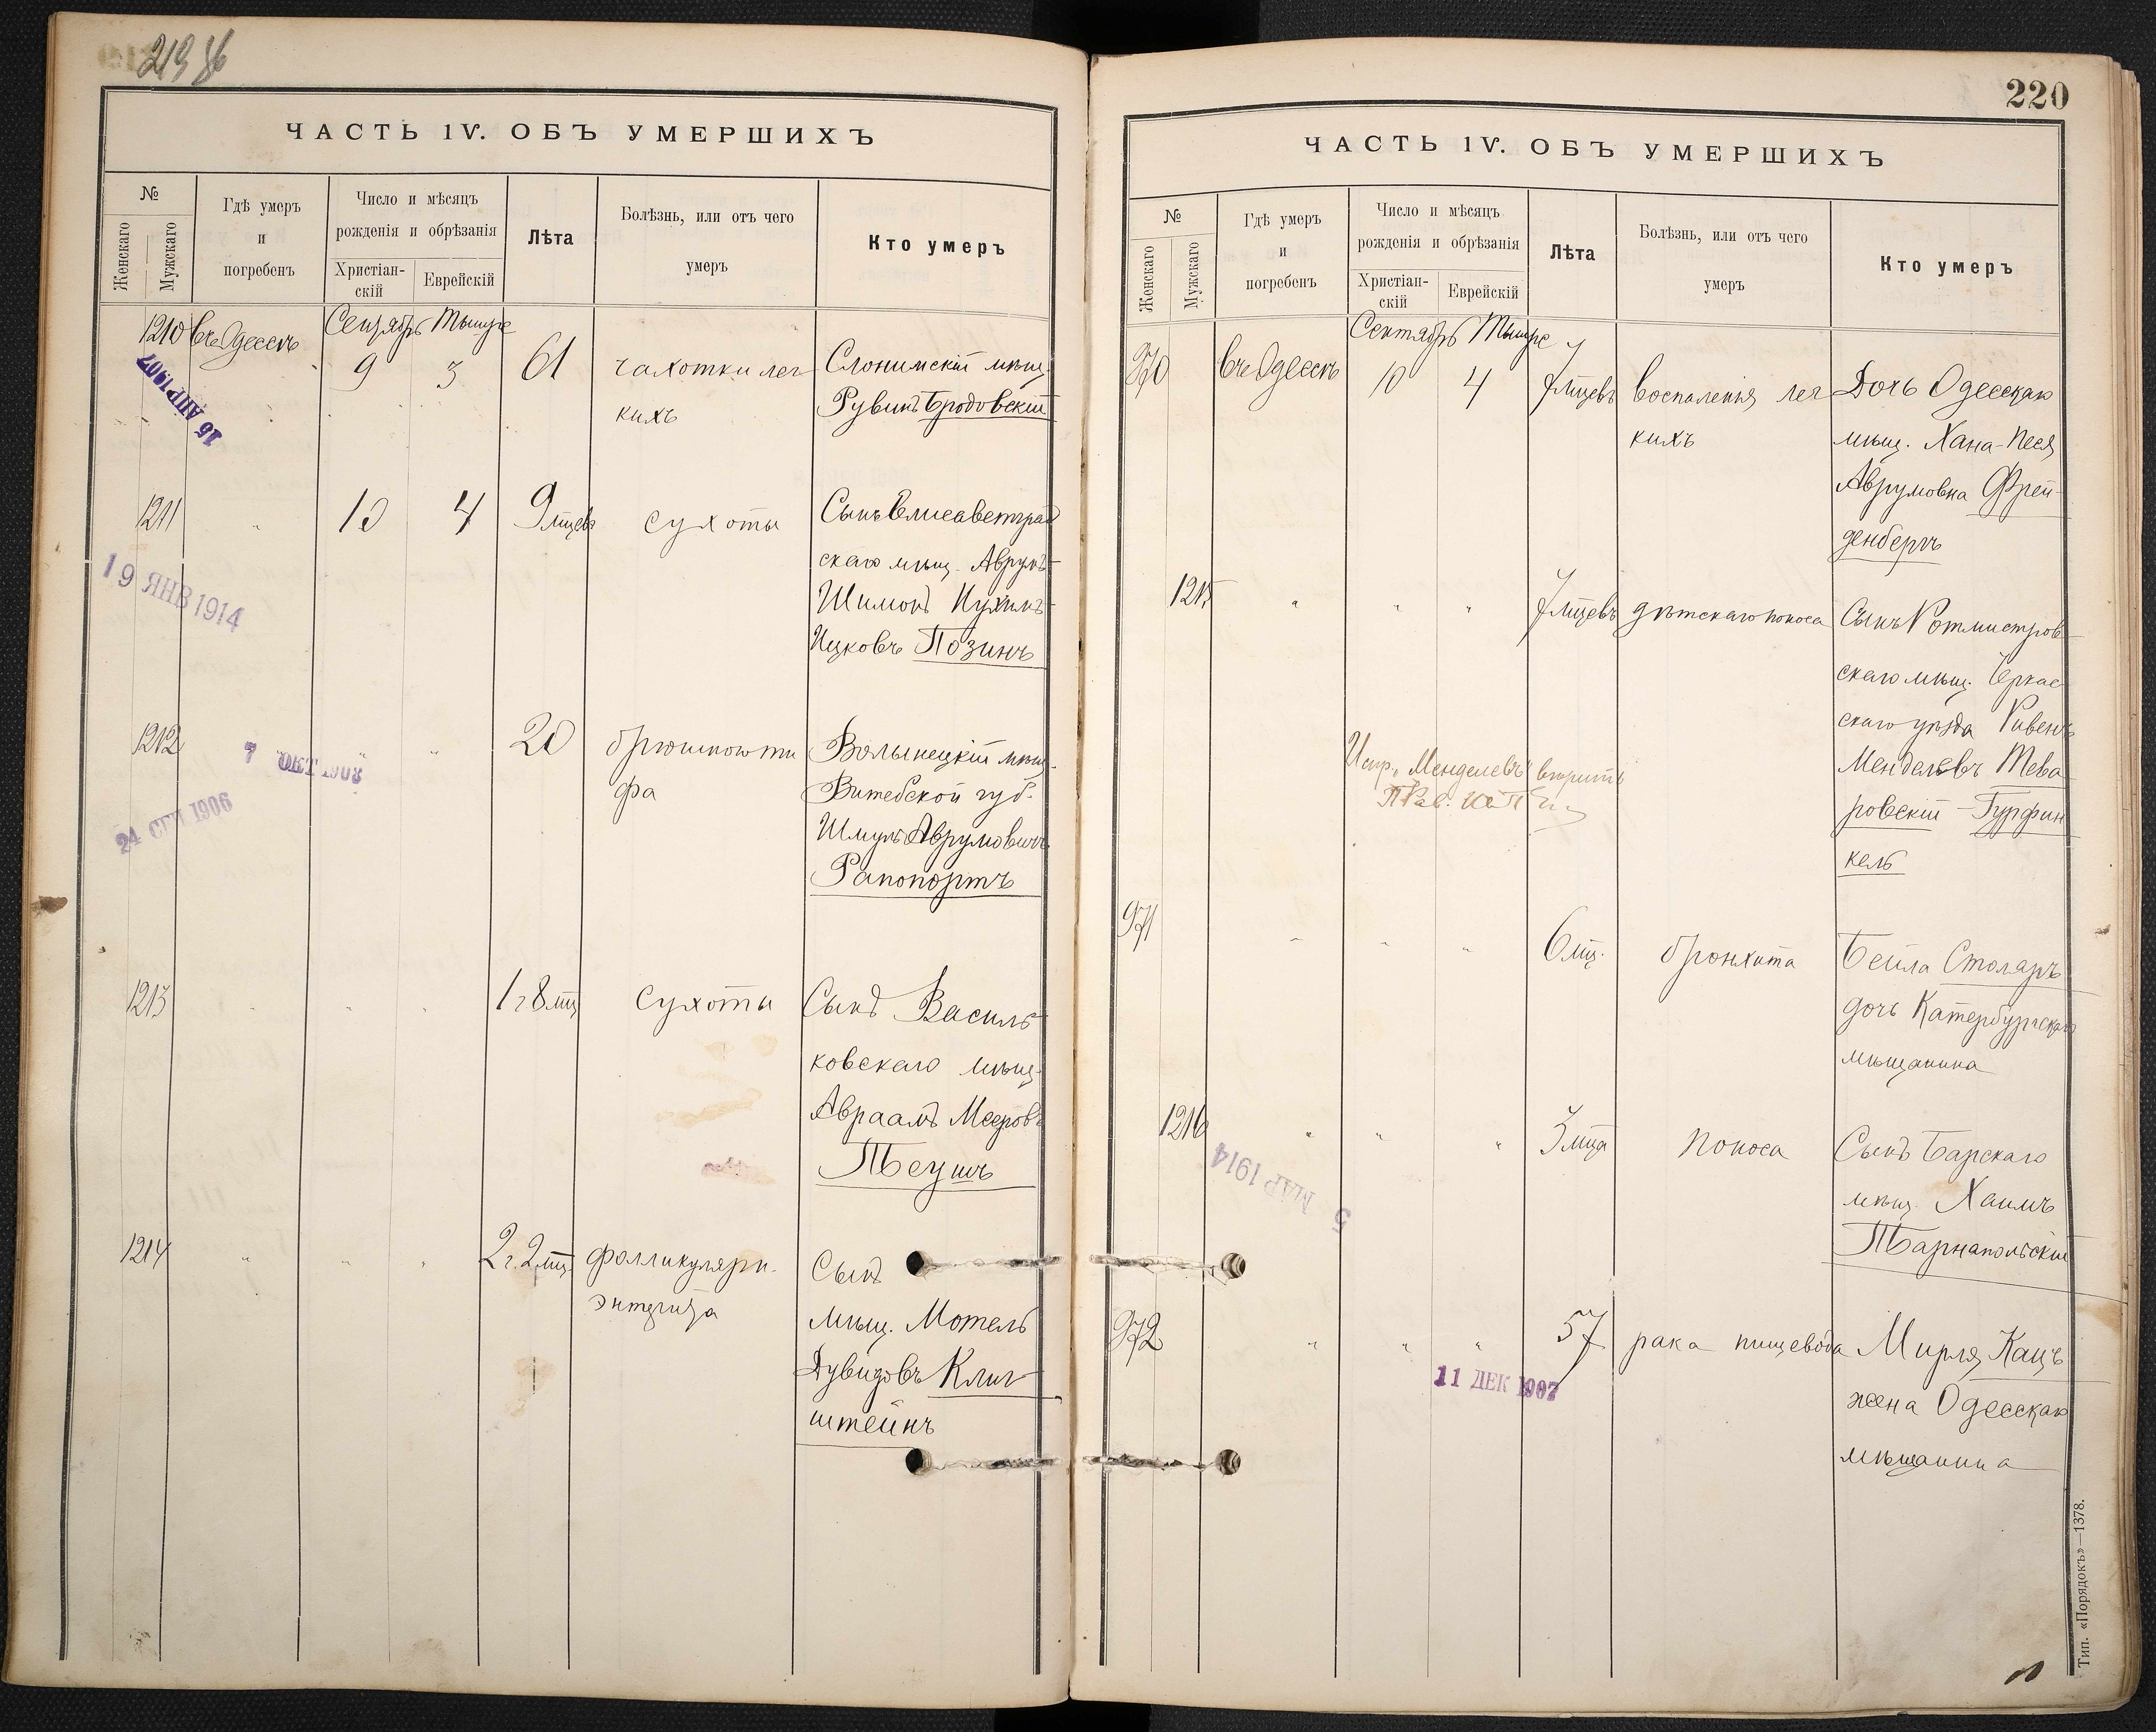 219 об
ЧАСТЬ IV. ОБЪ УМЕРШИХЪ
№
Женскаго
Мужскаго
Гдѣ умеръ
и
погребенъ
Число и мѣсяцъ
рожденія и обрѣзанія
Христіан-
скій
Еврейскій
Лѣта
Болѣзнь, или отъ чего
умеръ
Кто умеръ
1210 въ Одессѣ Сентябрь Тышре
9 3 61 чахотки лег Слонимскій мѣщ.
кихъ Рувинъ Бродовскій
15 АПР 1907
1211 " 10 4 9 мцевъ сухоты Сынъ Елисаветград
скаго мѣщ. Аврумъ-
Шимонъ Нухимъ-
Ицковъ Позинъ
19 ЯНВ 1914
1212 " " 20 брюшного ти Волынецкій мѣщ.
фа Витебской губ.
Шмуль Аврумовичъ
Рапопортъ
7 ОКТ 1908
24 СЕН 1906
1213 " " " 1 г 8 мц Сухоты Сынъ Василь
ковскаго мѣщ.
Авраамъ Мееровъ
Теушъ
1214 " " " 2 г. 2 мц. фолликулярн. Сынъ
энтерита мѣщ. Мотель
Дувидовъ Клиг
штейнъ
220
ЧАСТЬ IV. ОБЪ УМЕРШИХЪ
№
Женскаго
Мужскаго
Гдѣ умеръ
и
погребенъ
Число и мѣсяцъ
рожденія и обрѣзанія
Христіан-
скій
Еврейскій
Лѣта
Болѣзнь, или отъ чего
умеръ
Кто умеръ
Сентябрь Тышре
970 въ Одессѣ 10 4 7 мцевъ воспаленія лег Дочь Одесскаго
кихъ мѣщ. Хана-Песя
Аврумовна Фрей-
денбергъ
1215 " " " 7 мцевъ дѣтскаго поноса Сынъ Ротмистров
скаго мѣщ. Черкас
скаго уѣзда Рувенъ
Менделевъ Тева
ровскій-Гурфин
кель
Испр. "Менделевъ" вѣрить
971 " " " 6 мц. бронхита Бейла Столяръ
дочь Катербургскаго
мѣщанина
1216 " " " 3 мца поноса Сынъ Барскаго
мѣщ. Хаимъ
Тарнапольскій
5 МАР 1914
972 " " " 57 рака пищевода Мирля Кацъ
жена Одесскаго
мѣщанина
11 ДЕК 1907
Тип. «Порядокъ»—1378.